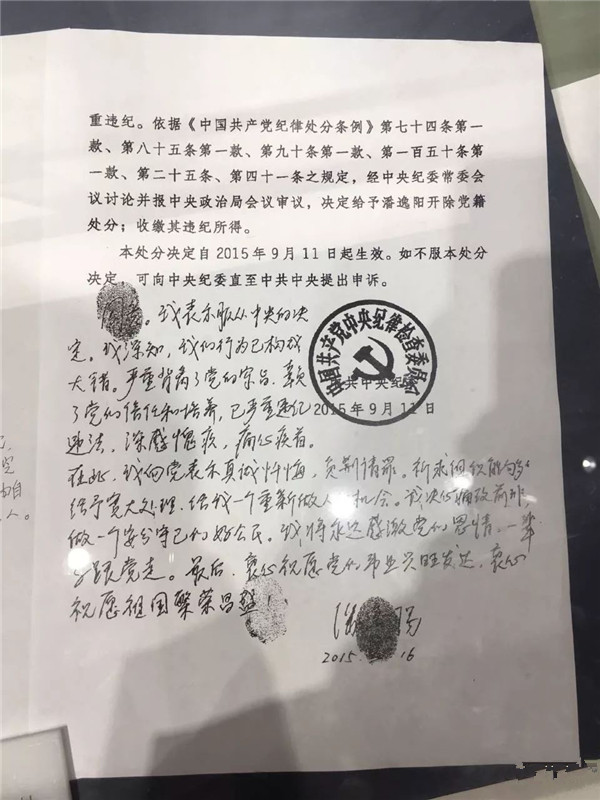 重违纪。依据《中国共产党纪律处分条例》第七十四条第一
款、第八十五条第一款、第九十条第一款、第一百五十条第
一款、第二十五条、第四十一条之规定，经中央纪委常委会
议讨论并报中央政治局会议审议，决定给予潘逸阳开除党籍
处分；收缴其违纪所得。
本处分决定自2015年9月11日起生效。如不服本处分
决定，可向中央纪委直至中共中央提出申诉。
我表示服从中央的决
定。我深知，我的行为已构成
大错。严重背离了党的宗旨，辜负
了党的信任和培养，已严重违纪
违法，深感愧疚，痛心疾首。
中国共产党中央纪律检查委员会
共中央纪
2015年9月11日
在此，我向党表示真诚忏悔，负荆请罪。祈求组织能够
给予宽大处理，给我一个重新做人的机会。我决心痛改前非，
做一个安分守己的好公民。我将永远感激党的恩情，一辈
子跟党走。最后，衷心祝愿党的事业兴旺发达，衷心
祝愿祖国繁荣昌盛！
潘 阳
2015. 16
人。